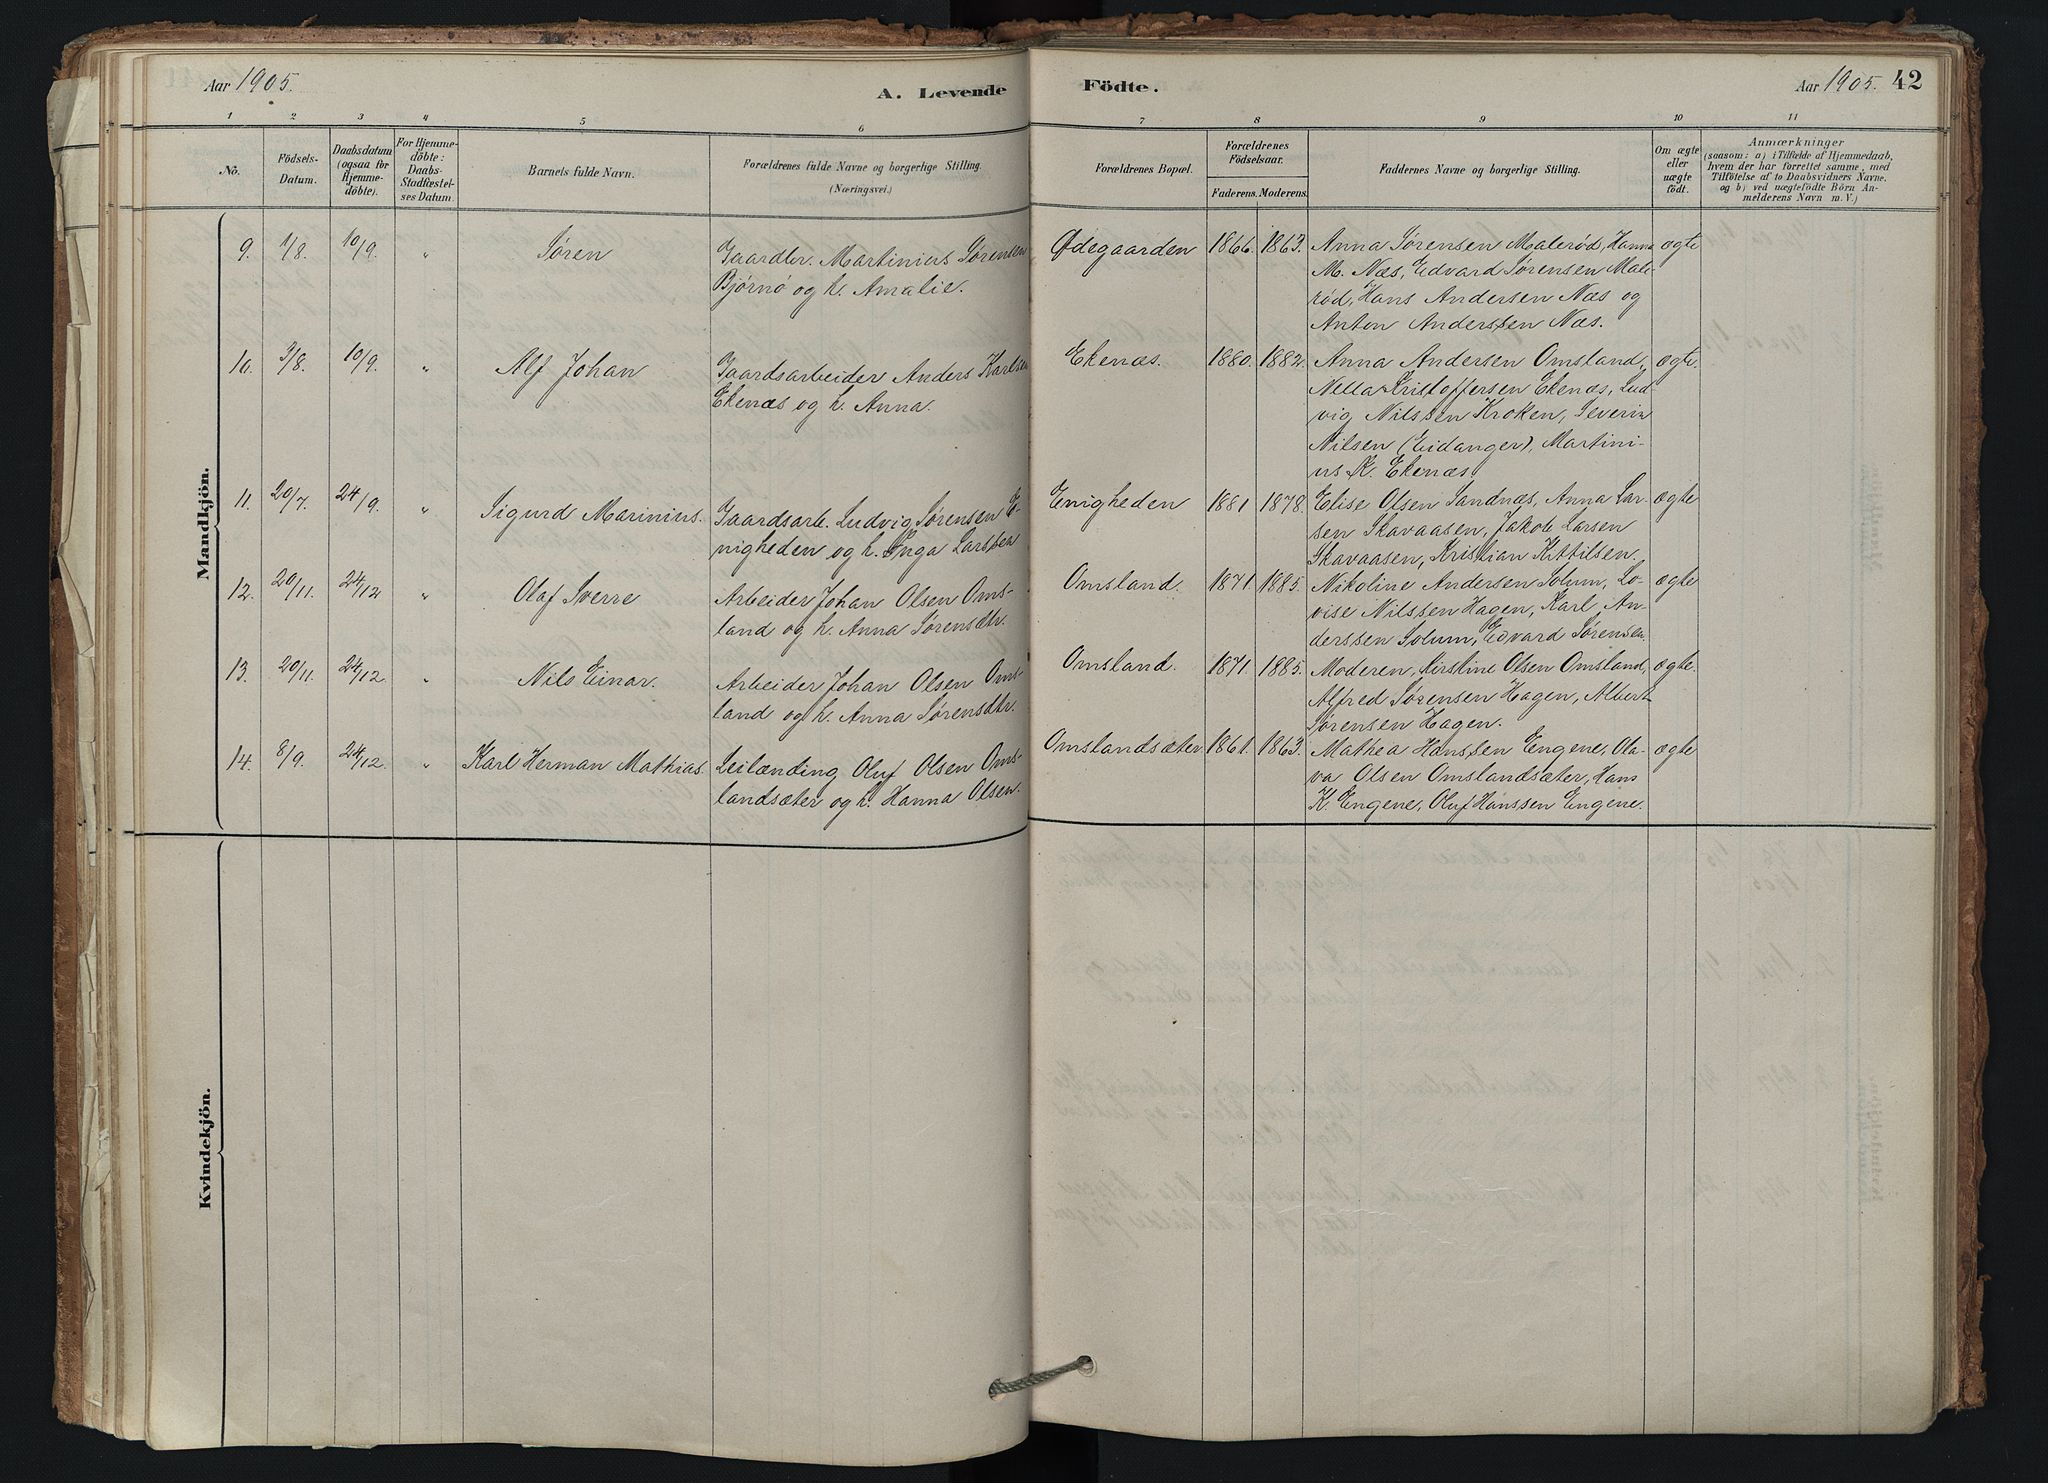 Aar 1905.
A. Levende
Födte.
Aar 1905. 42
1 2 3 4 5 6 7 8 9 10 11
No.
Födsels-
Datum.
Daabsdatum
(ogsaa for
Hjemme-
döbte).
For Hjemme-
döbte:
Daabs-
Stadfæstel-
ses Datum.
Barnets fulde Navn.
Forældrenes fulde Navne og borgerlige Stilling.
(Næringsvei.)
Forældrenes Bopæl.
Forældrenes
Födselsaar.
Faderens. Moderens.
Faddernes Navne og borgerlige Stilling.
Om ægte
eller
uægte
födt.
Anmærkninger
(saasom: a) i Tilfælde af Hjemmedaab,
hvem der har forrettet samme, med
Tilföielse af to Daabsvidners Navne.
og b) ved uægtefödte Börn An-
melderens Navn m. V.)
Mandkjön.
9. 1/8. 10/9. " Søren
Gaardbr. Martinius Sørensen
Bjørnø og h. Amalie.
Ødegaarden 1866. 1863.
Anna Sørensen Malerød, Hanna
M. Næs, Edvard Sørensen Male-
rød, Hans Andersen Næs og
Anton Anderssen Næs.
ægte
10. 3/8. 10/9. " Alf Johan
Gaardsarbeider Anders Karlsen
Ekenæs og h. Anna.
Ekenæs. 1880. 1882.
Anna Andersen Omsland,
Nella Kristoffersen Ekenæs, Lud-
vig Nilssen Kroken, Severin
Nilsen (Eidanger), Martini-
us K. Ekenæs
ægte.
11. 20/7. 24/9. " Sigurd Marinius.
Gaardsarb. Ludvig Sørensen E-
nigheden og h. Inga Larssen
Enigheden 1881 1878.
Elise Olsen Sandnæs, Anna Lar-
sen Skavaasen, Jakob Larsen
Skavaasen, Kristian Kittilsen.
ægte
12. 20/11. 24/12 " Olaf Sverre
Arbeider Johan Olsen Oms-
land og h. Anna Sørensdtr.
Omsland. 1871. 1885.
Nikoline Andersen Solum, Lo-
vise Nilssen Hagen, Karl An-
derssen Solum, Edvard Sørensen.
ægte
13. 20/11. 24/12. " Nils Einar.
Arbeider Johan Olsen Oms-
land og h. Anna Sørensdtr.
Omsland. 1871. 1885.
Moderen, Kirstine Olsen Omsland,
Alfred Sørensen Hagen, Albert
Sørensen Hagen.
ægte.
14. 8/9. 24/12. " Karl Herman Mathias.
Leilænding Oluf Olsen Oms-
landsæter og h. Hanna Olsen.
Omslandsæter 1861. 1863.
Mathea Hanssen Engene, Ola-
va Olsen Omslandsæter, Hans
K. Engene, Oluf Hanssen Engene.
ægte
Kvindekjön.